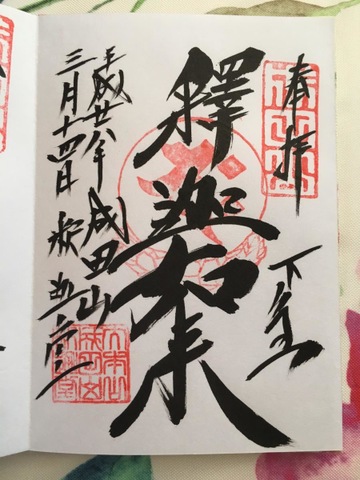 奉拝
下総
釋迦如来
平成廿八年 成田山
三月十四日 釈迦堂